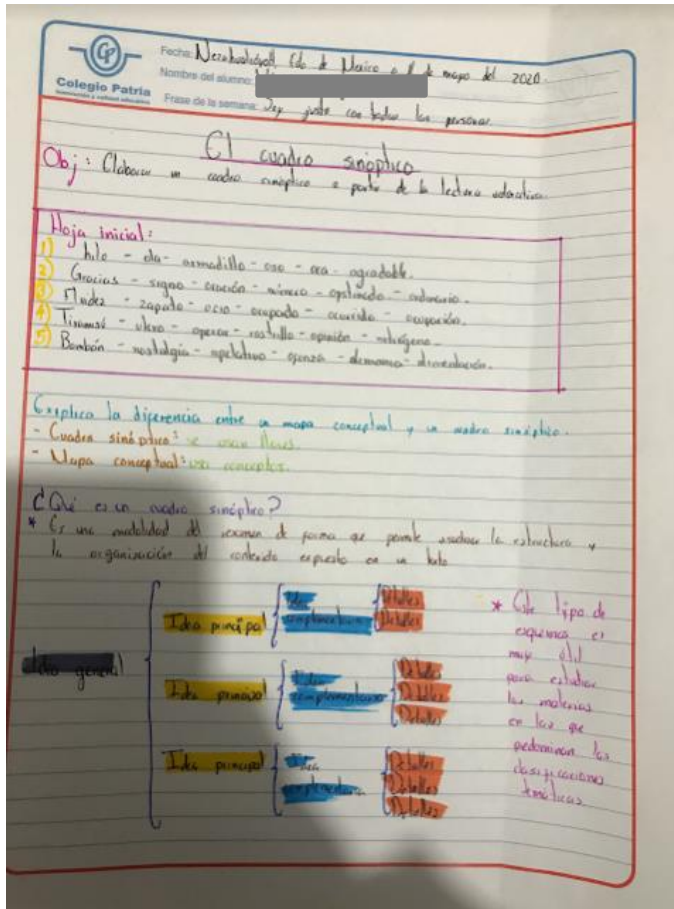 CP
Colegio Patria
Fecha: Nezahualcóyotl, Edo de Mexico a de mayo del 2020.
Nombre del alumno:
Frase de la semana: Soy justo con todas las personas.
El cuadro sinóptico
Obj: Elaborar un cuadro sinóptico a partir de la lectura
Hoja inicial:
1) hilo - ola - armadillo - oso - osa - agradable.
2) Gracias - signo - oración - minero - - ordinario.
3) - zapato - ocio - ocupado - ocurrido - ocupación.
4) Tiramisú - útero - operar - rastrillo - opinión - nitrógeno.
5) Bombón - nostalgia - apelativo - - - alimentación.
Explica la diferencia entre un mapa conceptual y un cuadro sinóptico.
- Cuadro sinóptico: se usan llaves.
- Mapa conceptual: usa conceptos.
¿Qué es un cuadro sinóptico?
* Es una modalidad del resumen de forma que permite la estructura y
la organización del contenido expuesto en un texto
Idea general
Idea principal
Idea
complementaria
Detalles
Detalles
Idea principal
Idea
complementaria
Detalles
Detalles
Detalles
Idea principal
Idea
complementaria
Detalles
Detalles
Detalles
* Este tipo de
esquemas es
muy útil
para estudiar
las materias
en las que
predominan las
clasificaciones
temáticas